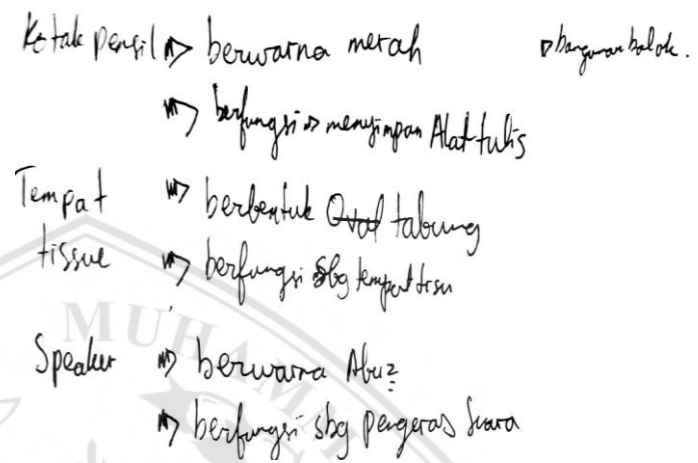 Kotak pensil => berwarna merah => bangunan balok.
=> berfungsi => menyimpan Alat tulis
Tempat => berbentuk Oval tabung
tissue => berfungsi sbg tempat tisu
MUHAMM
Speaker => berwarna Abu2
=> berfungsi sbg pengeras suara